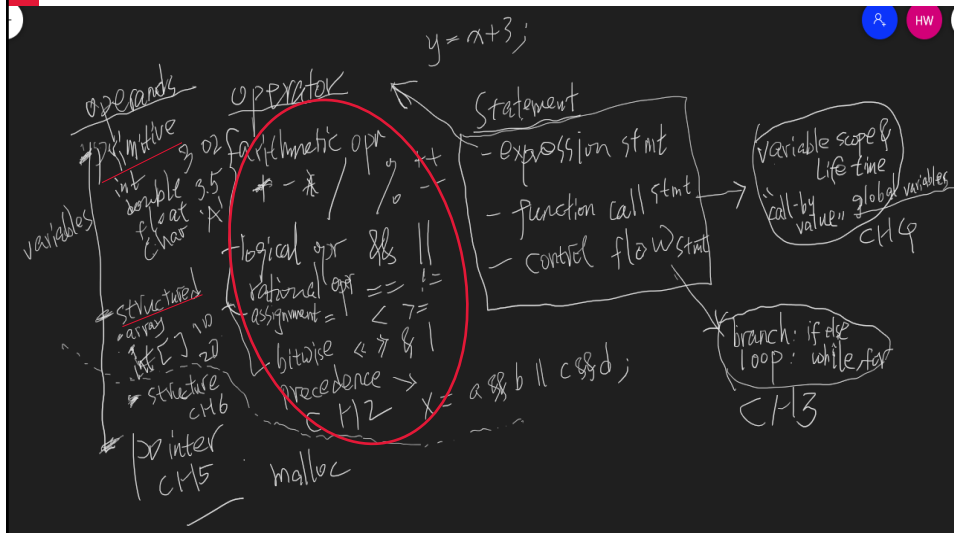 HW
y = x+3;
operands
primitive
int 3, 02
double 3.5
float
char 'A'
variables
structured
- array
int [ ] 1D
2D
- structure
CH6
pointer
CH5
malloc
operator
arithmetic opr
+ - * / % ++ --
- logical opr && ||
rational opr == !=
- assignment = < >=
- bitwise << >> & |
precedence →
CH2
x = a && b || c && d ;
Statement
- expression stmt
- function call stmt
- control flow stmt
variable scope &
Life time
"call-by value" global variables
CH4
branch: if else
loop: while, for
CH3